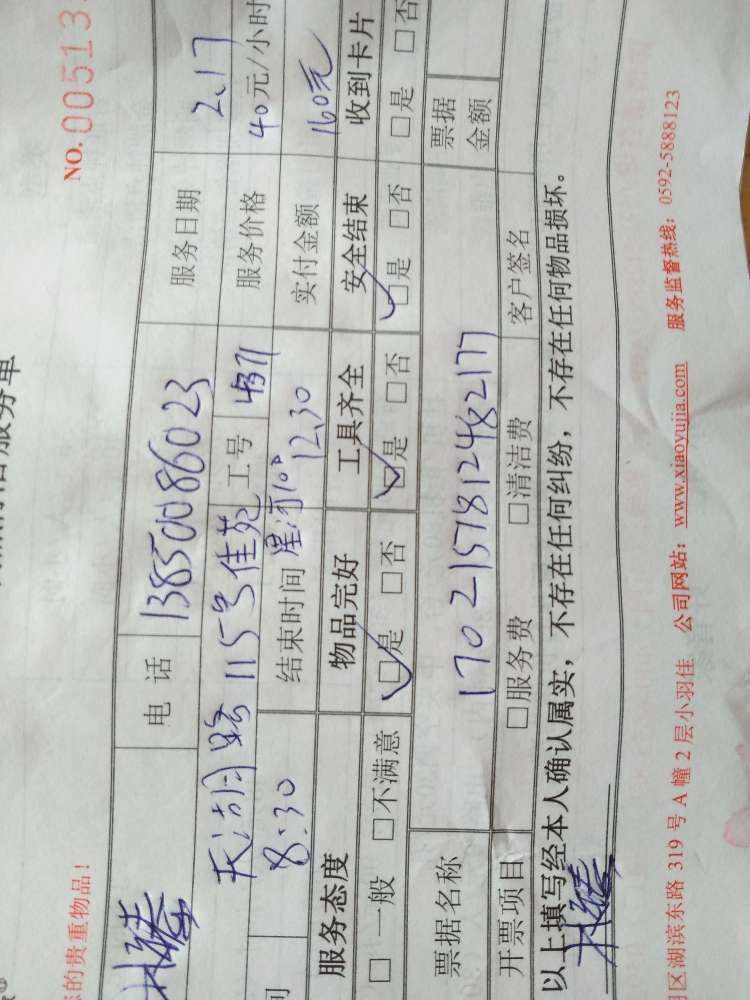 NO.00513
您的贵重物品！
电话 13850086023 服务日期 2.17
天湖路115号佳苑 工号 4371 服务价格 40元/小时
8:30 结束时间 12.30 实付金额 160元
星河100
服务态度 物品完好 工具齐全 安全结束 收到卡片
□一般 □不满意 □是 □否 □是 □否 □是 □否 □是 □否
票据名称 1702157812482177 票据金额
开票项目 □服务费 □清洁费 客户签名
以上填写经本人确认属实，不存在任何纠纷，不存在任何物品损坏。
区湖滨东路 319 号 A 幢 2 层小羽佳 公司网站：www.xiaoyujia.com 服务监督热线：0592-5888123